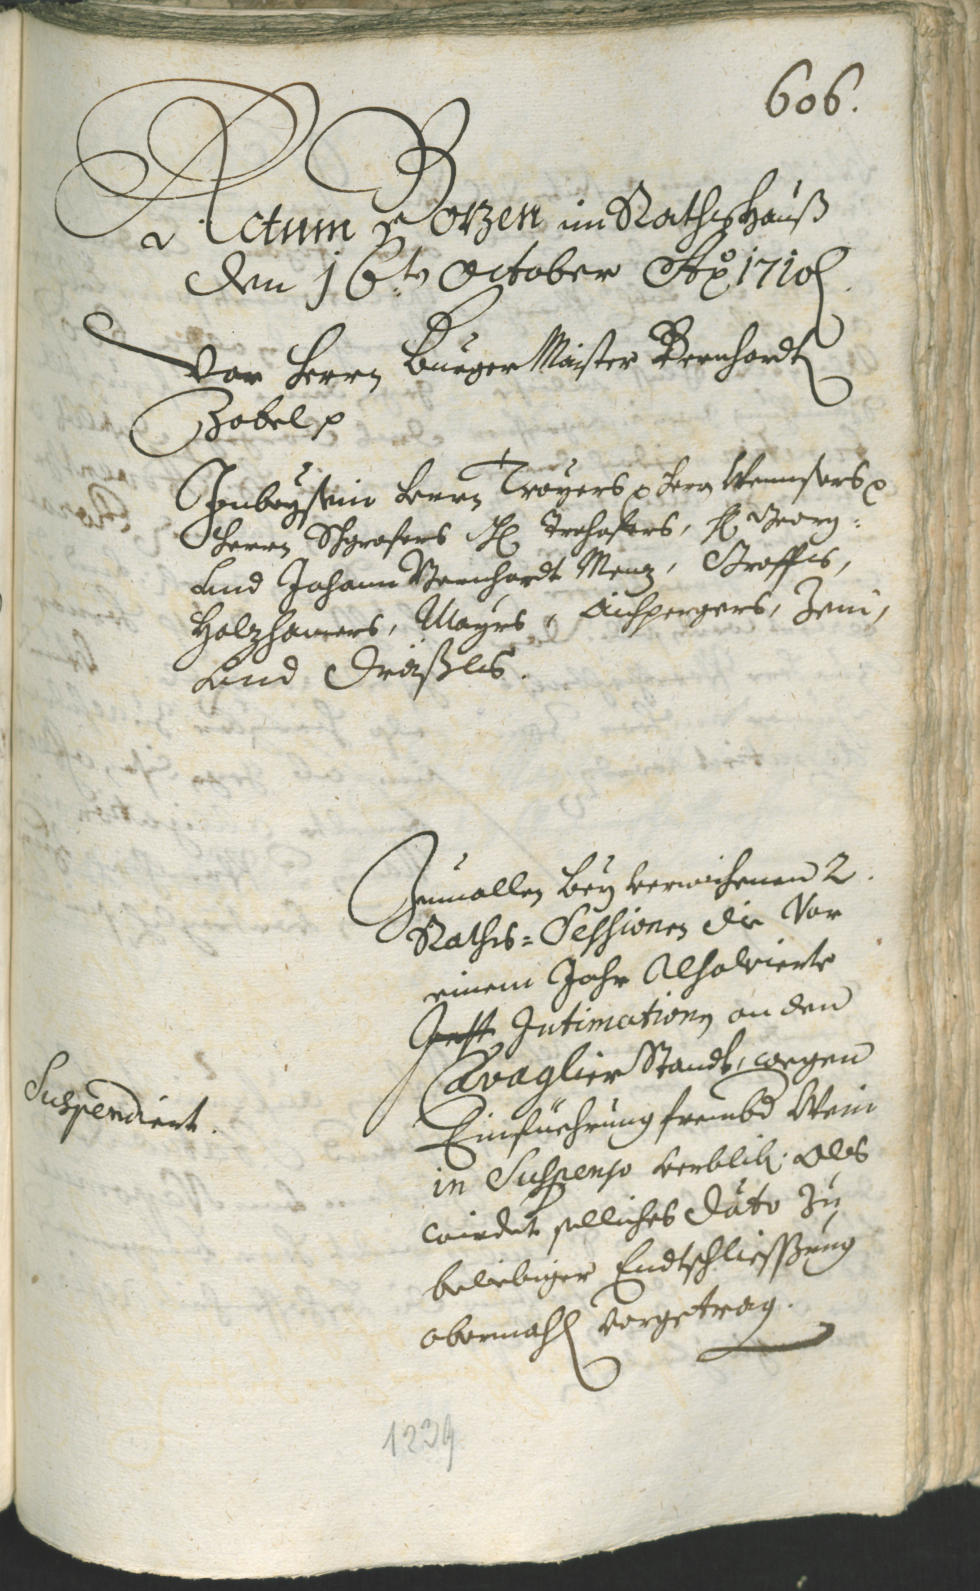 606.
Actum Bozen im Rathshauß
den 16ten October Ao 1710
Vor Herrn BurgerMaister Bernhardt
Zobel
Inbeysein Herrn Troyers Herrn
Herrn Herrn Georg:
und Johann Bernhardt Menz, Straffis,
Holzhamers, Mayrs, Aichpergers, Zeni,
und Dräßls.
Zumallen bey verwichenen 2
Raths=Sessionen die Vor
einem Jahr Resolvierte
Intimation an den
Cavaglier Standt, wegen
Einfüehrung frembd Wein
in Suspenso verblib: Als
wirdet solliches dato zu
beliebiger Endtschliessßung
abermahl vorgetrag.
Suspendiert.
1239